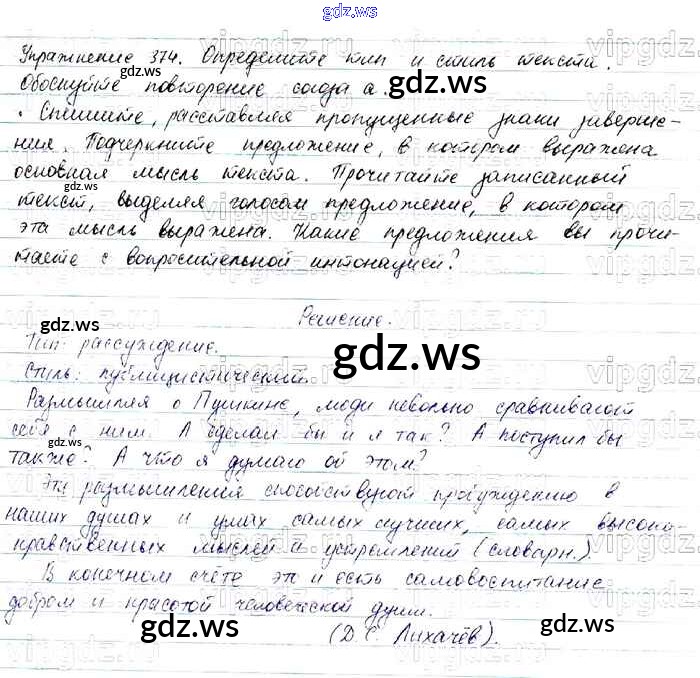 gdz.ws
Упражнение 374. Определите тип и стиль текста.
Обоснуйте повторение союза а.
. Спешите, расставляя пропущенные знаки заверше-
ния. Подчеркните предложение, в котором выражена
основная мысль текста. Прочитайте записанный
текст, выделяя голосом предложение, в котором
эта мысль выражена. Какие предложения вы прочи-
таете с вопросительной интонацией?
Решение.
Тип: рассуждение.
Стиль: публицистический.
Размышляя о Пушкине, люди невольно сравнивают
себя с ним. А сделал бы и я так? А поступил бы
также? А что я думаю об этом?
Эти размышления способствуют пробуждению в
наших душах и умах самых лучших, самых высоко-
нравственных мыслей и устремлений (словарн.).
В конечном счёте это и есть самовоспитание
добром и красотой человеческой души.
(Д.С. Лихачёв).